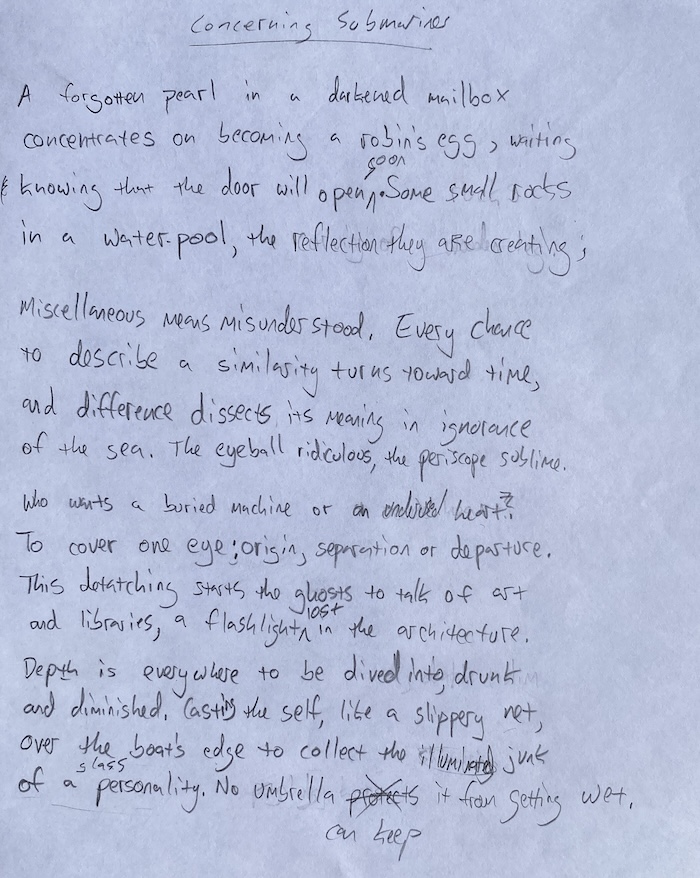 Concerning Submarines
A forgotten pearl in a darkened mailbox
concentrates on becoming a robin's egg, waiting
soon
& knowing that the door will open^. Some small rocks
in a water-pool, the reflection they are creating;
Miscellaneous means misunderstood. Every chance
to describe a similarity turns toward time,
and difference dissects its meaning in ignorance
of the sea. The eyeball ridiculous, the periscope sublime.
Who wants a buried machine or an heart?
To cover one eye: origin, separation or departure.
This detatching starts the ghosts to talk of art
lost
and libraries, a flashlight^ in the architecture.
Depth is everywhere to be dived into, drunk
and diminished. Casting the self, like a slippery net,
over the boat's edge to collect the illuminated junk
glass
of a personality. No umbrella protects it from getting wet.
can keep